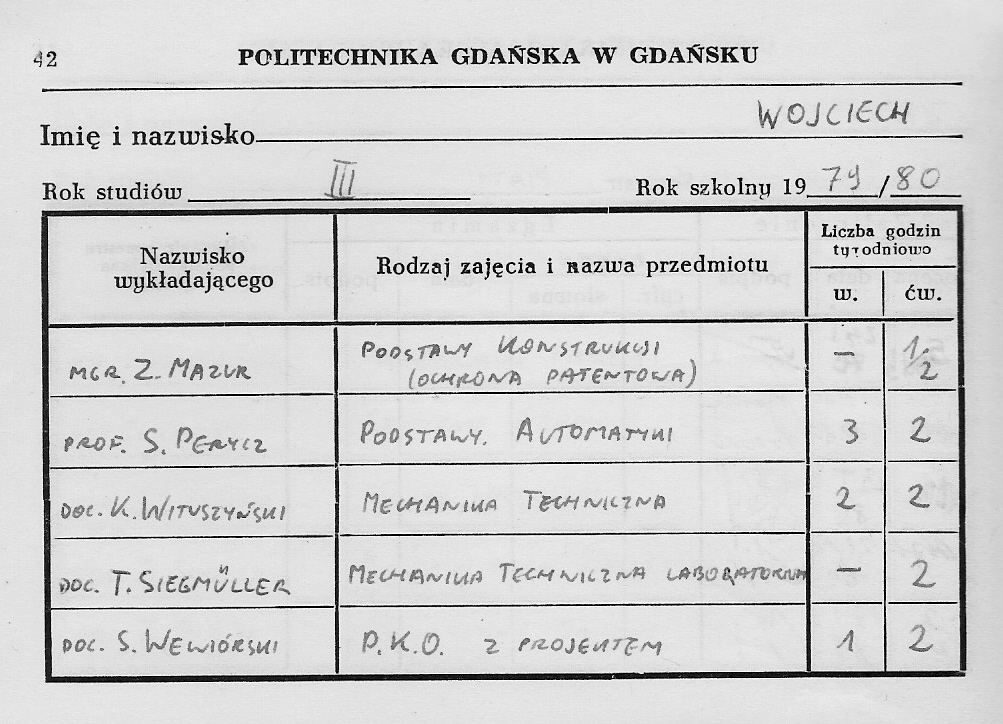 42
POLITECHNIKA GDAŃSKA W GDAŃSKU
Imię i nazwisko WOJCIECH
Rok studiów III Rok szkolny 19 79 / 80
Nazwisko wykładającego Rodzaj zajęcia i nazwa przedmiotu Liczba godzin tygodniowo
w. ćw.
MGR. Z. MAZUR PODSTAWY KONSTRUKCJI (OCHRONA PATENTOWA) – 1/2
PROF. S. PERYCZ PODSTAWY AUTOMATYKI 3 2
DOC. K. WITUSZYŃSKI MECHANIKA TECHNICZNA 2 2
DOC. T. SIEGMÜLLER MECHANIKA TECHNICZNA LABORATORNA – 2
DOC. S. WEWIÓRSKI P.K.O. Z PROJEKTEM 1 2